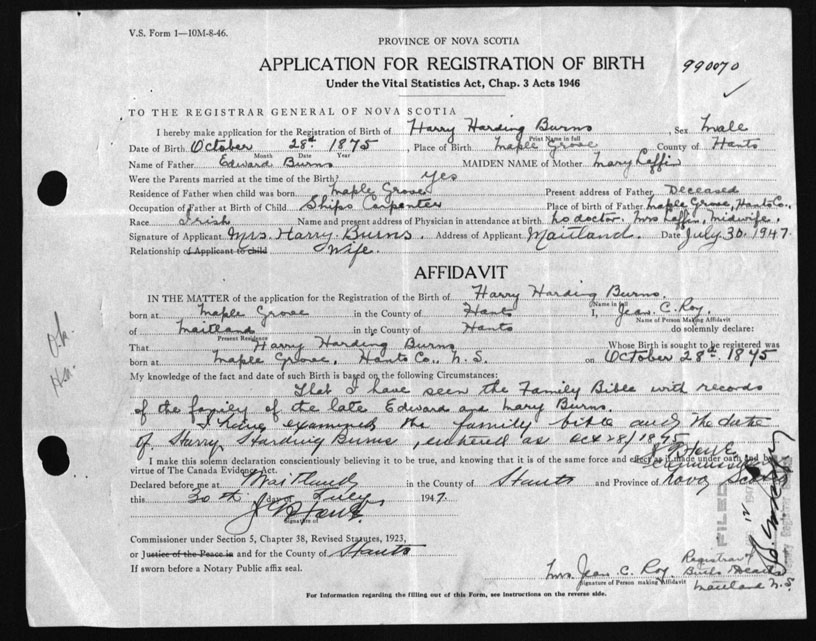 V.S. Form 1—10M-8-46.
PROVINCE OF NOVA SCOTIA
APPLICATION FOR REGISTRATION OF BIRTH
990070
Under the Vital Statistics Act, Chap. 3 Acts 1946
TO THE REGISTRAR GENERAL OF NOVA SCOTIA
I hereby make application for the Registration of Birth of Harry Harding Burns, Sex Male
Print Name in full
Date of Birth October 28th 1875, Place of Birth Maple Grove County of Hants
Month Date Year
Name of Father Edward Burns MAIDEN NAME of Mother Mary Laffin
Were the Parents married at time of the Birth? Yes
Residence of Father when child was born Maple Grove Present address of Father Deceased
Occupation of Father at Birth of Child Ships Carpenter Place of birth of Father Maple Grove, Hants Co.,
Race Irish Name and present address of Physician in attendance at birth no doctor. Mrs Laffin, Midwife.
Signature of Applicant Mrs. Harry Burns. Address of Applicant Maitland. Date July 30. 1947.
Relationship of Applicant to child Wife.
AFFIDAVIT
IN THE MATTER of the application for the Registration of the Birth of Harry Harding Burns.
Name in full
born at Maple Grove in the County of Hants I, Jean. C. Roy.
Name of Person Making Affidavit
of Maitland in the County of Hants do solemnly declare:
Present Residence
That Harry Harding Burns Whose Birth is sought to be registered was
born at Maple Grove, Hants Co., N.S. on October 28th 1875
My knowledge of the fact and date of such Birth is based on the following Circumstances:
That I have seen the Family Bible with records
of the family of the late Edward and Mary Burns.
I having examined the family bible and the date
of Harry Harding Burns, entered as Oct 28/1875
I make this solemn declaration conscientiously believing it to be true, and knowing that it is of the same force and effect as if made under oath and by
virtue of The Canada Evidence Act.
Declared before me at Maitland in the County of Hants and Province of Nova Scotia
this 30th day of July 1947.
Signature of
Commissioner under Section 5, Chapter 38, Revised Statutes, 1923,
or Justice of the Peace in and for the County of Hants
If sworn before a Notary Public affix seal.
Mrs. Jean C. Roy. Registrar of
Births & Deaths
Maitland N.S.
Signature of Person making Affidavit
For Information regarding the filling out of this Form, see instructions on the reverse side.
FILED